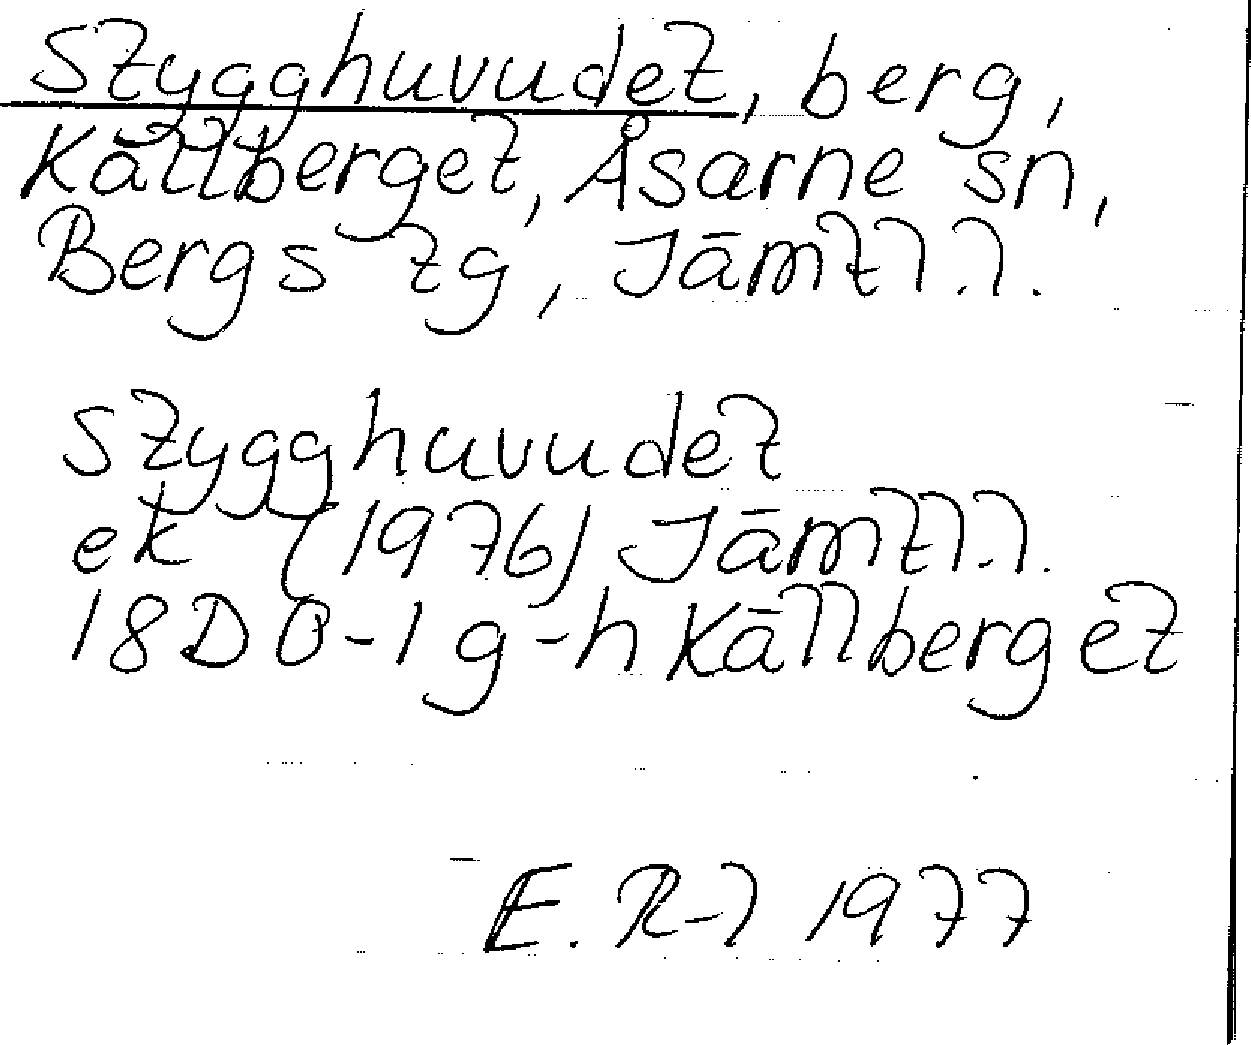 Stygghuvudet, berg,
Källberget, Åsarne sn,
Bergs tg, Jämtl.l.
Stygghuvudet
ek (1976) Jämtl.l.
18D 0-1 g-h Källberget
E. R-l 1977